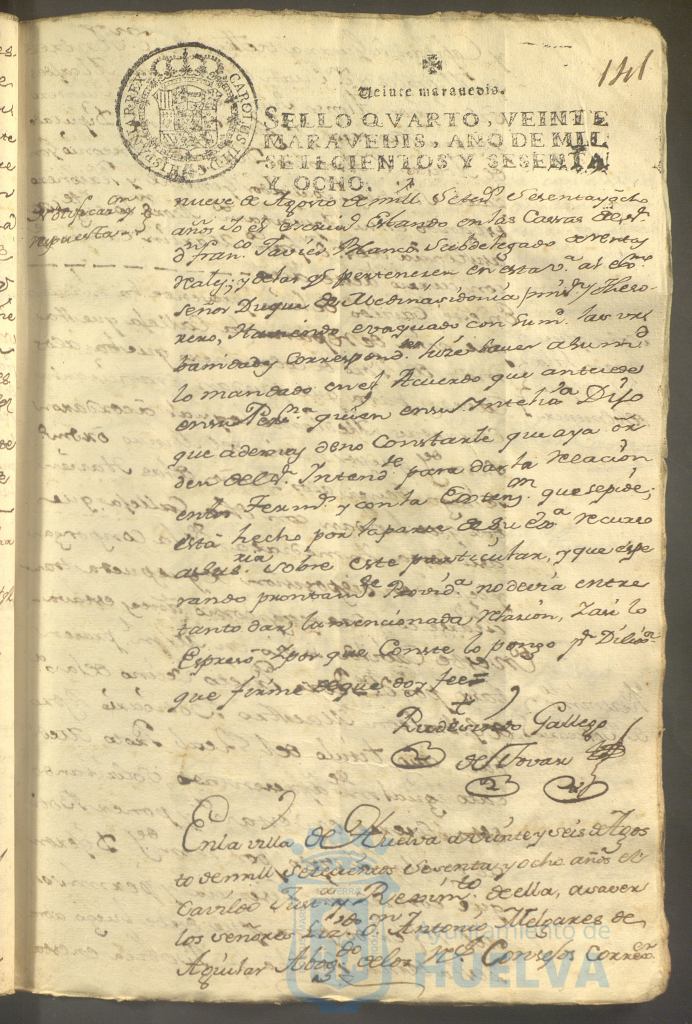 141
Veinte maravedis.
SELLO QVARTO, VEINTE
MARAVEDIS, AÑO DE MIL
SETECIENTOS Y SESENTA
Y OCHO.
CAROLUS III D G HISPANIAR REX
Notificaz.on y
repuesta
nueve de Agosto de mill Setez.s Sesenta y ocho
años Yo el Escriv.o Estando en las Cassas de el S.r
D.n Fran.co Javier Blanco Subdelegado de rentas
reales, y de las q.e pertenecen en esta v.a al ex.mo
Señor Duque de Medinasidonia, y Theso-
rero, Haviendo evaquado con Sum.d las urs
banidades Correspond.tes hize saver a Sum.d
lo mandado en el Acuerdo que antecede
en su Pers.na quien en su Intelix.a Dijo
que ademas de no Constarle que aya or̃
den de el S.r Intend.te para dar la relacion
en los Term.s y con la Extens.on que se pide;
está hecho por la parte de Su Ex.a recurso
sobre este particular, y que espe
rando promtam.te Provid.a no devia entre
tanto dar la mencionada relacion, Y asi lo
Espreso Y por que Conste lo pongo p.r Dilix.a
que firmé de que doy fee=
Rudesindo Gallego
de Tovar
En la villa de Huelva a veinte y seis de Agos
to de mill Setecientos Sesenta y ocho años el
Cavildo Just.a y Reximi.to de ella, a saver
los Señores Liz.do D.n Antonio Melgares de
Aguilar Abog.do de los R.s Consejos Correx.or
Ayuntamiento de
HUELVA